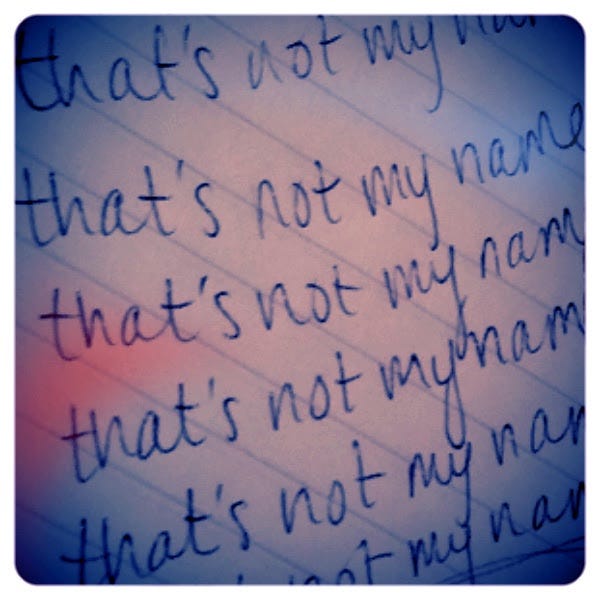 that's not my nam
that's not my name
that's not my nam
that's not my nam
that's not my nan
not my nan